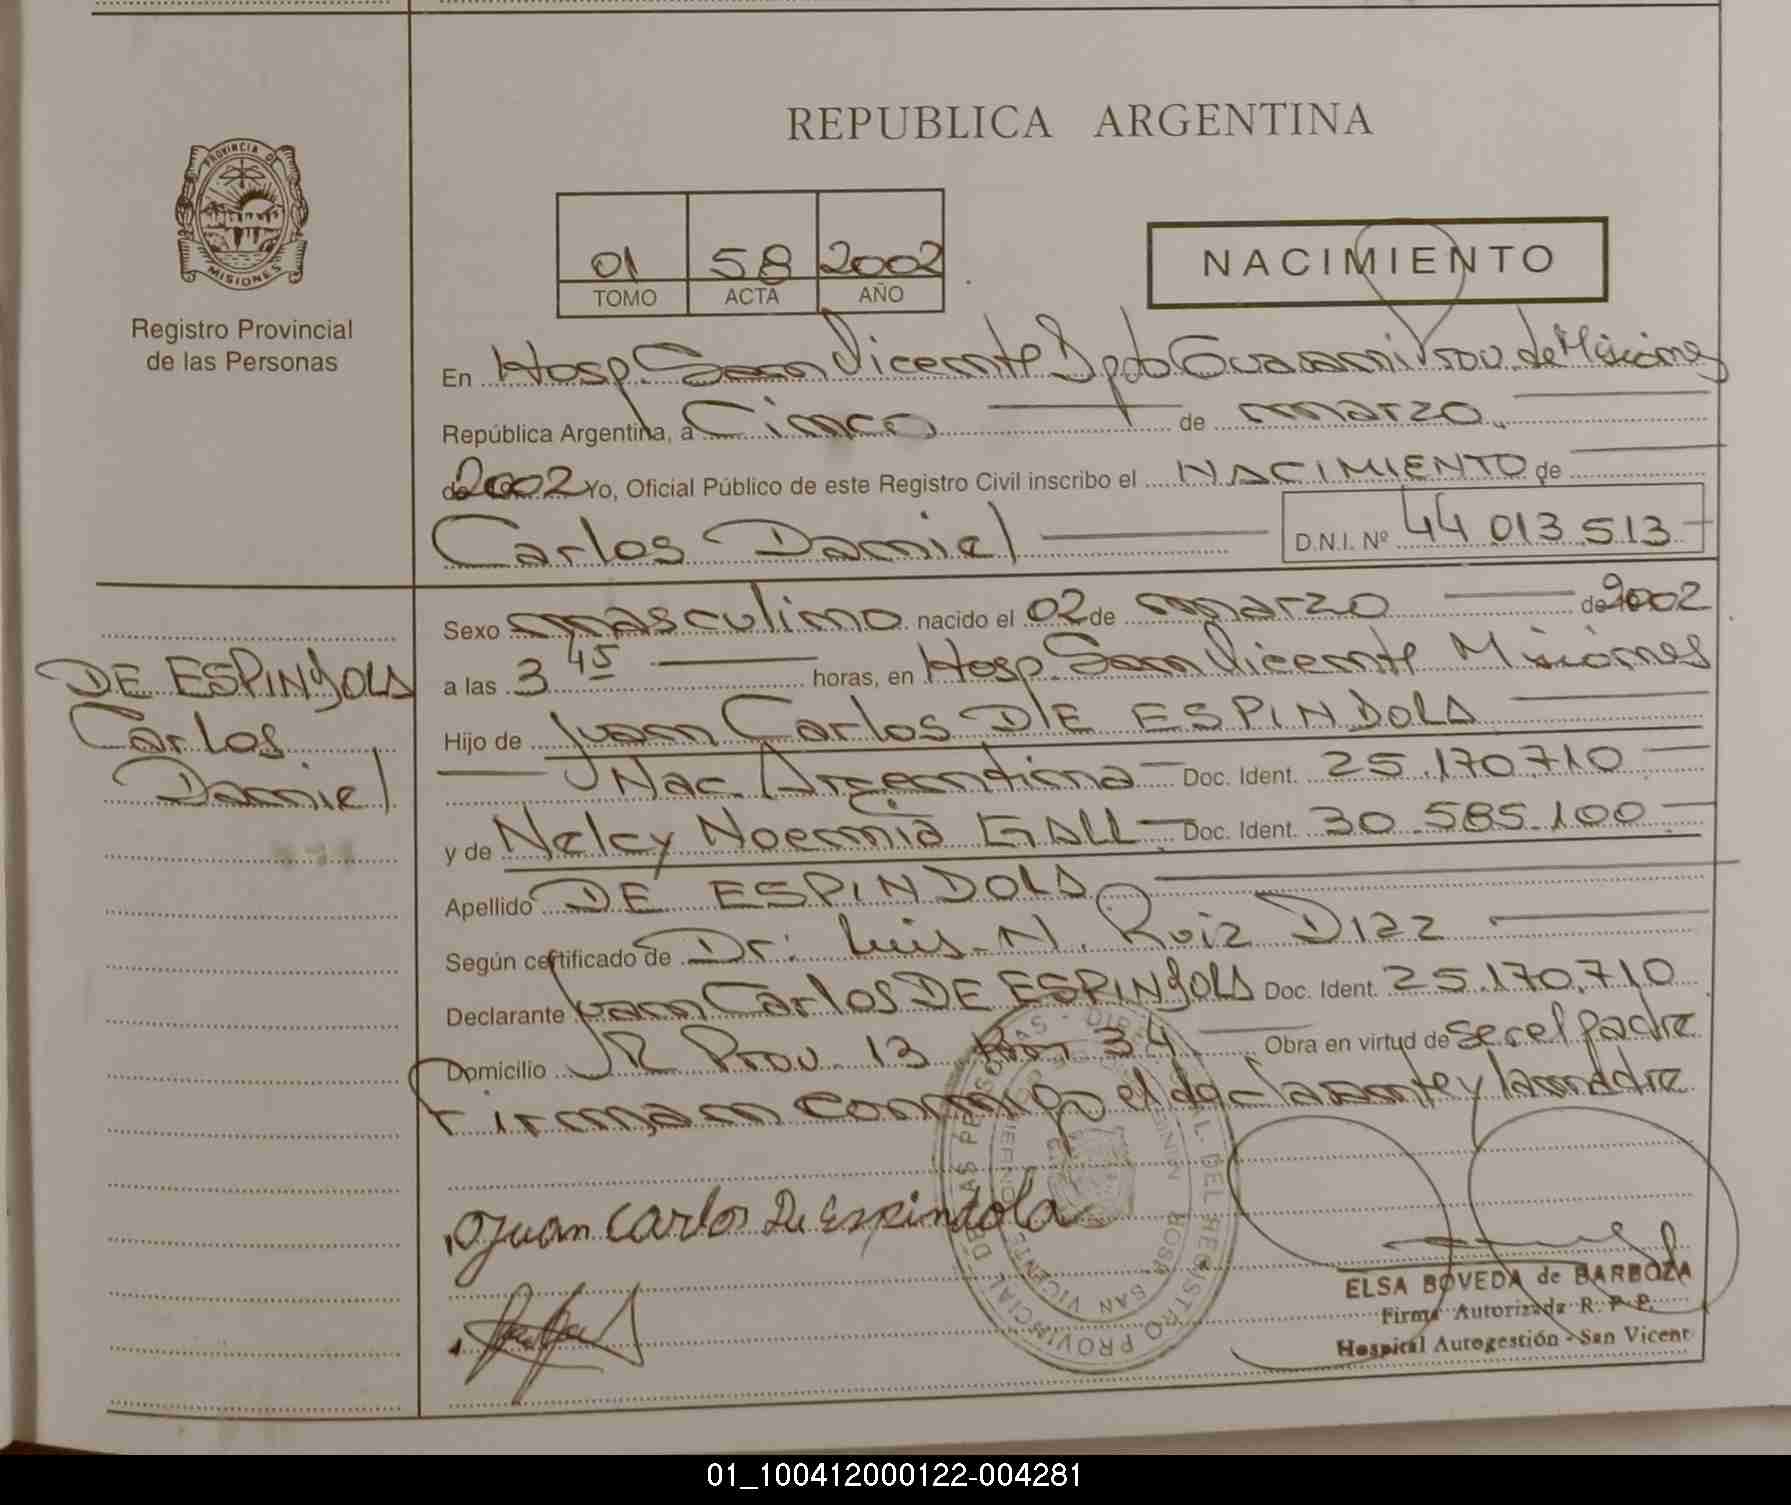 REPUBLICA ARGENTINA
PROVINCIA DE
MISIONES
Registro Provincial
de las Personas
01 58 2002
TOMO ACTA AÑO
NACIMIENTO
En Hosp San Vicente Dpdo Guarani Prov. de Misiones
República Argentina, a Cinco de marzo
de 2002 Yo, Oficial Público de este Registro Civil inscribo el NACIMIENTO de
Carlos Daniel D.N.I. Nº 44 013 513
DE ESPINDOLA
Carlos
Daniel
Sexo masculino nacido el 02 de marzo de 2002
a las 3 45 horas, en Hosp San Vicente Misiones
Hijo de Juan Carlos DE ESPINDOLA
Nac. Argentina Doc. Ident. 25.170.710
y de Nelcy Noemia GALL Doc. Ident. 30.585.100
Apellido DE ESPINDOLA
Según certificado de Dr. Luis N. Ruiz Diaz
Declarante Juan Carlos DE ESPINDOLA Doc. Ident. 25.170.710
Domicilio R Prov. 13 Km 34 Obra en virtud de ser el padre
Firman conmigo el declarante y la madre
Juan Carlos De Espindola
ELSA BOVEDA de BARBOZA
Firma Autorizada R. P. P.
Hospital Autogestión - San Vicent
REGISTRO PROVINCIAL DE LAS PERSONAS
HOSP. SAN VICENTE
01_100412000122-004281